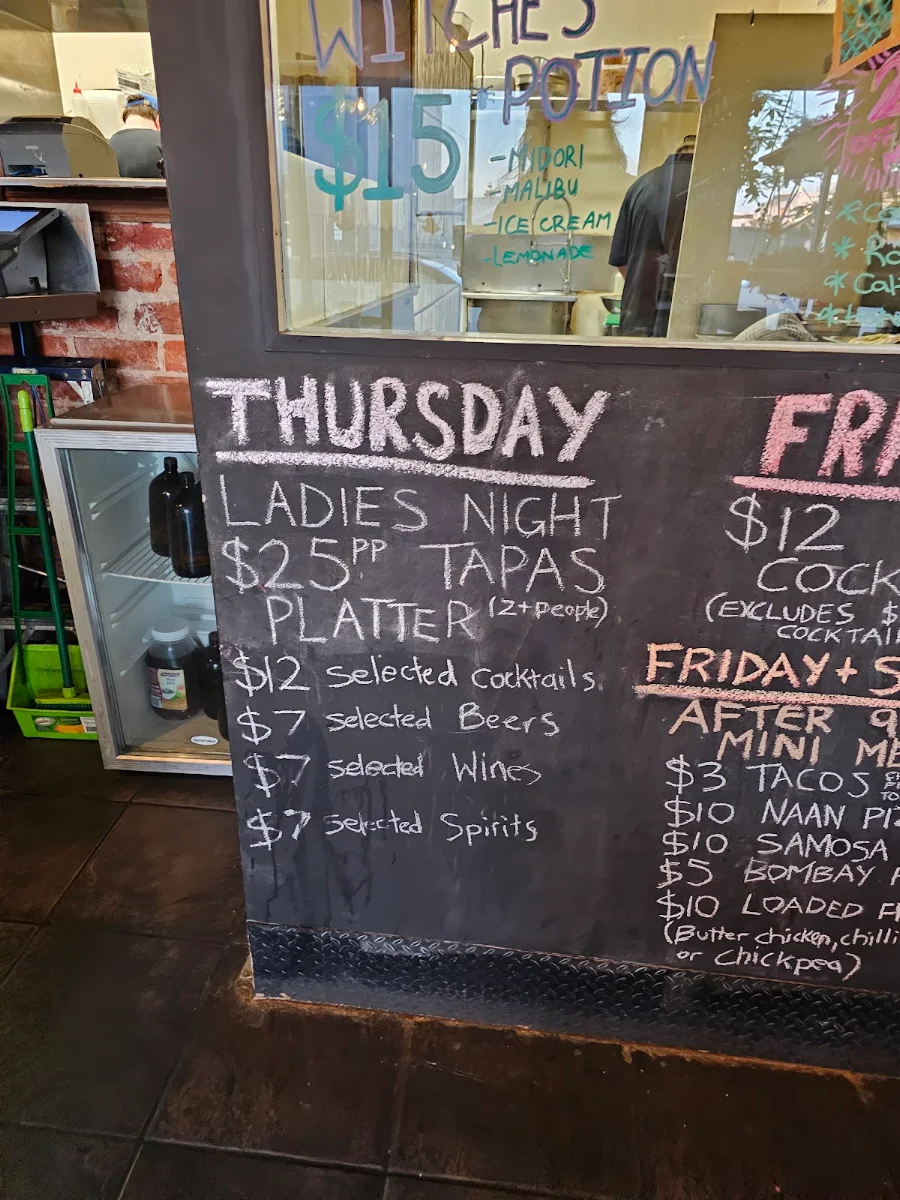 WITCHES
POTION
$15
-MIDORI
-MALIBU
-ICE CREAM
-LEMONADE
EPSON
THURSDAY
LADIES NIGHT
$25PP TAPAS
PLATTER (2+people)
$12 selected cocktails.
$7 selected Beers
$7 selected Wines
$7 selected Spirits
FRI
$12
COCK
(EXCLUDES $
COCKTAI
FRIDAY + S
AFTER 9
MINI ME
$3 TACOS
$10 NAAN PIZ
$10 SAMOSA
$5 BOMBAY
$10 LOADED FR
(Butter chicken, chilli
or Chickpea)